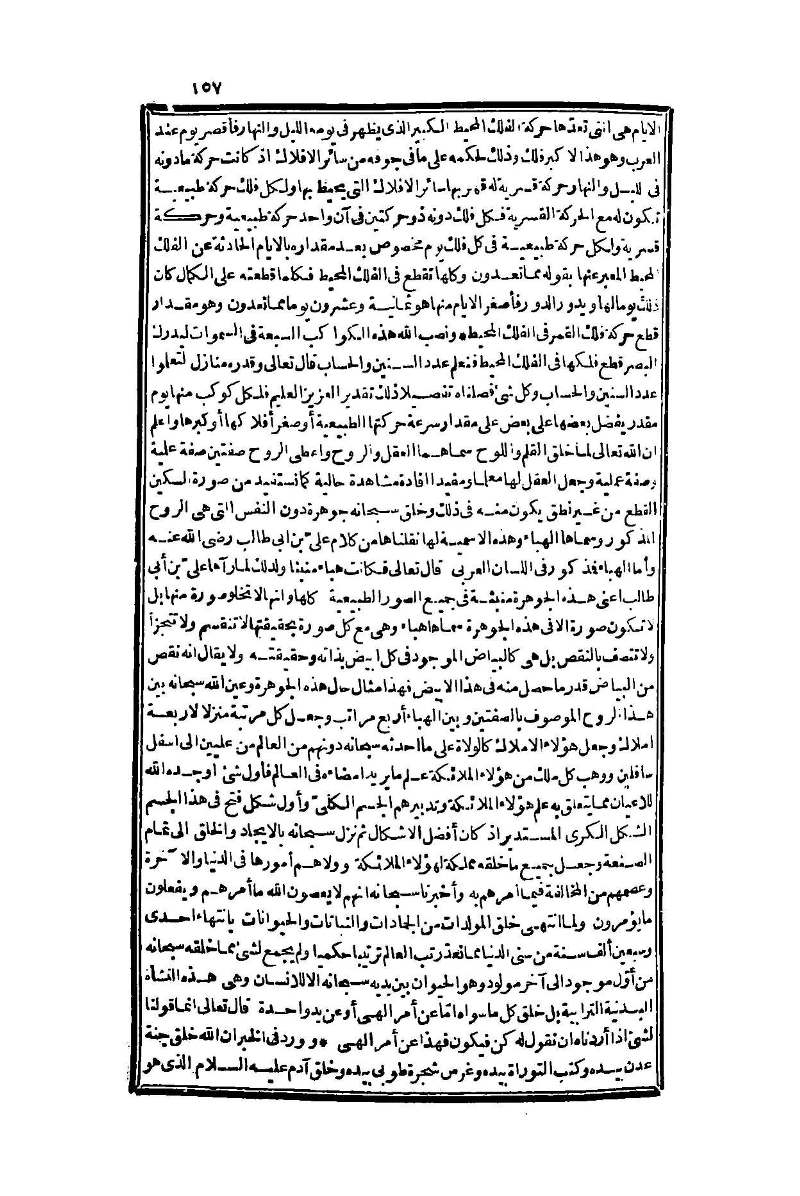 ١٥٧
الايام هى التى تعدها حركة الفلك المحيط الكبير الذى يظهر فى يومه الليل والنهار فأقصر يوم عند
العرب وهو هذا الاكبر فلك وذلك لحكمه على ما فى جوفه من سائر الافلاك اذ كانت حركة ما دونه
فى الليل والنهار حركة قسرية له قهر بها سائر الافلاك التى يحيط بها ولكل فلك حركة طبيعية
تكون له مع الحركة القسرية فكل فلك دونه ذو حركتين فى آن واحد حركة طبيعية وحركة
قسرية ولكل حركة طبيعية فى كل فلك يوم مخصوص يعد مقداره بالايام الحادثة عن الفلك
المحيط المعبر عنها بقوله مما تعدون وكلها تقطع فى الفلك المحيط فكلما قطعته على الكمال كان
ذلك يوما لها ويدور الدور فأصغر الايام منها هو ثمانية وعشرون يوما مما تعدون وهو مقدار
قطع حركة فلك القمر فى الفلك المحيط * ونصب الله هذه الكواكب السبعة فى السموات ليدرك
البصر قطع فلكها فى الفلك المحيط فنعلم عدد السنين والحساب قال تعالى وقدره منازل لتعلموا
عدد السنين والحساب وكل شئ فصلناه تفصيلا ذلك تقدير العزيز العليم فلكل كوكب منها يوم
مقدر يفضل بعضها على بعض على مقدار سرعة حركتها الطبيعية أو صغر أفلاكها أو كبرها واعلم
ان الله تعالى لما خلق القلم واللوح سماهما العقل والروح واعطى الروح صفتين صفة علمية
وصفة عملية وجعل العقل لها معلما ومفيدا افادة مشاهدة حالية كما تستفيد من صورة السكين
القطع من غير نطق يكون منه فى ذلك وخلق سبحانه جوهرة دون النفس التى هى الروح
المذكور وسماها الهباء وهذه الاسمية لها نقلناها من كلام على بن ابى طالب رضى الله عنه
وأما الهباء فمذكور فى اللسان العربى قال تعالى فكانت هباء منبثا ولذلك لما رآها على بن أبى
طالب اعنى هذه الجوهرة منبثة فى جميع الصور الطبيعية كلها وانها لا تخلو صورة منها بل
لا تكون صورة الا فى هذه الجوهرة سماها هباء وهى مع كل صورة بحقيقتها لا تنقسم ولا تتجزأ
ولا تتصف بالنقص بل هى كالبياض الموجود فى كل ابيض بذاته وحقيقته ولا يقال انه نقص
من البياض قدر ما حصل منه فى هذا الابيض فهذا مثال حال هذه الجوهرة وعين الله سبحانه بين
هذا الروح الموصوف بالصفتين وبين الهباء أربع مراتب وجعل كل مرتبة منزلا لاربعة
املاك وجعل هؤلاء الاملاك كالولاة على ما احدثه سبحانه دونهم من العالم من عليين الى اسفل
سافلين ووهب كل ملك من هؤلاء الملائكة علم ما يريد امضاءه فى العالم فأول شئ اوجده الله
للاعيان مما يتعلق به علم هؤلاء الملائكة وتدبيرهم الجسم الكلى وأول شكل فتح فى هذا الجسم
الشكل الكرى المستدير اذ كان أفضل الاشكال ثم نزل سبحانه بالايجاد والخلق الى تمام
الصنعة وجعل جميع ما خلقه مملكة لهؤلاء الملائكة وولاهم أمورها فى الدنيا والآخرة
وعصمهم من المخالفة فيما أمرهم به وأخبرنا سبحانه انهم لا يعصون الله ما أمرهم ويفعلون
ما يؤمرون ولما انتهى خلق المولدات من الجمادات والنباتات والحيوانات بانتهاء احدى
وسبعين ألف سنة من سنى الدنيا مما نعد رتب العالم ترتيبا حكميا ولم يجمع لشئ مما خلقه سبحانه
من أول موجود الى آخر مولود وهو الحيوان بين يديه سبحانه الا للانسان وهى هذه النشأة
البدنية الترابية بل خلق كل ما سواه اما عن أمر الهى أو عن يد واحدة قال تعالى انما قولنا
لشئ اذا أردناه ان نقول له كن فيكون فهذا عن أمر الهى * وورد فى الخبر ان الله خلق جنة
عدن بيده وكتب التوراة بيده وغرس شجرة طوبى بيده وخلق آدم عليه السلام الذى هو